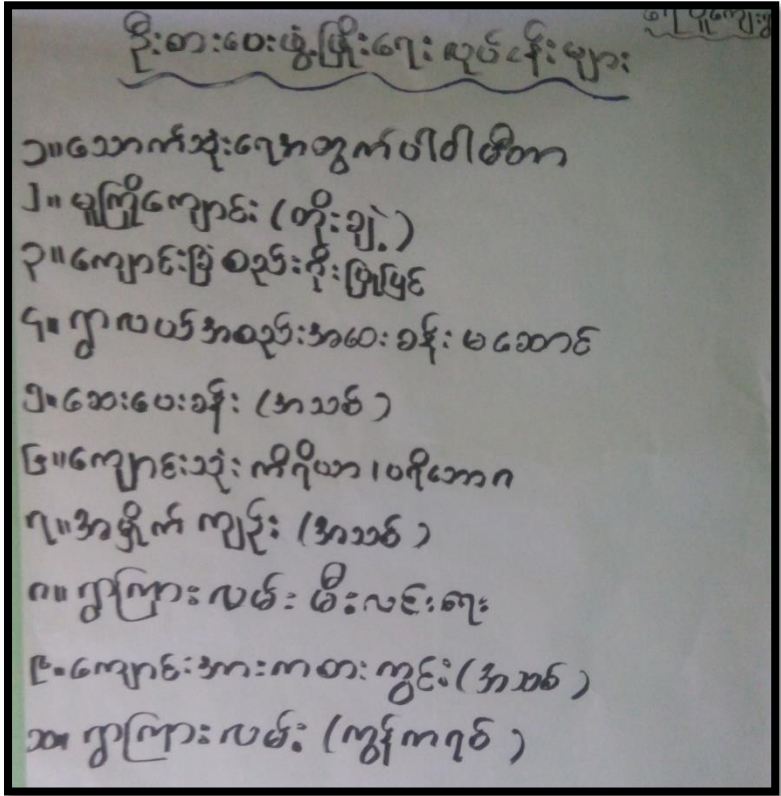 ဦးစားပေးဖွံ့ဖြိုးရေး လုပ်ငန်းများ
၁။ သောက်သုံးရေအတွက်ပါဝါမီတာ
၂။ မူကြိုကျောင်း (တိုးချဲ့)
၃။ ကျောင်းခြံစည်းရိုးပြုပြင်
၄။ ရွာလယ်အစည်းအဝေးခန်းမဆောင်
၅။ ဆေးပေးခန်း (အသစ်)
၆။ ကျောင်းသုံး ကိရိယာ၊ ပရိဘောဂ
၇။ အမှိုက် ကျဉ်း (အသစ်)
၈။ ရွာကြားလမ်း မီးလင်းရေး
၉။ ကျောင်းအားကစားကွင်း (အသစ်)
၁၀။ ရွာကြားလမ်း (ကွန်ကရစ်)